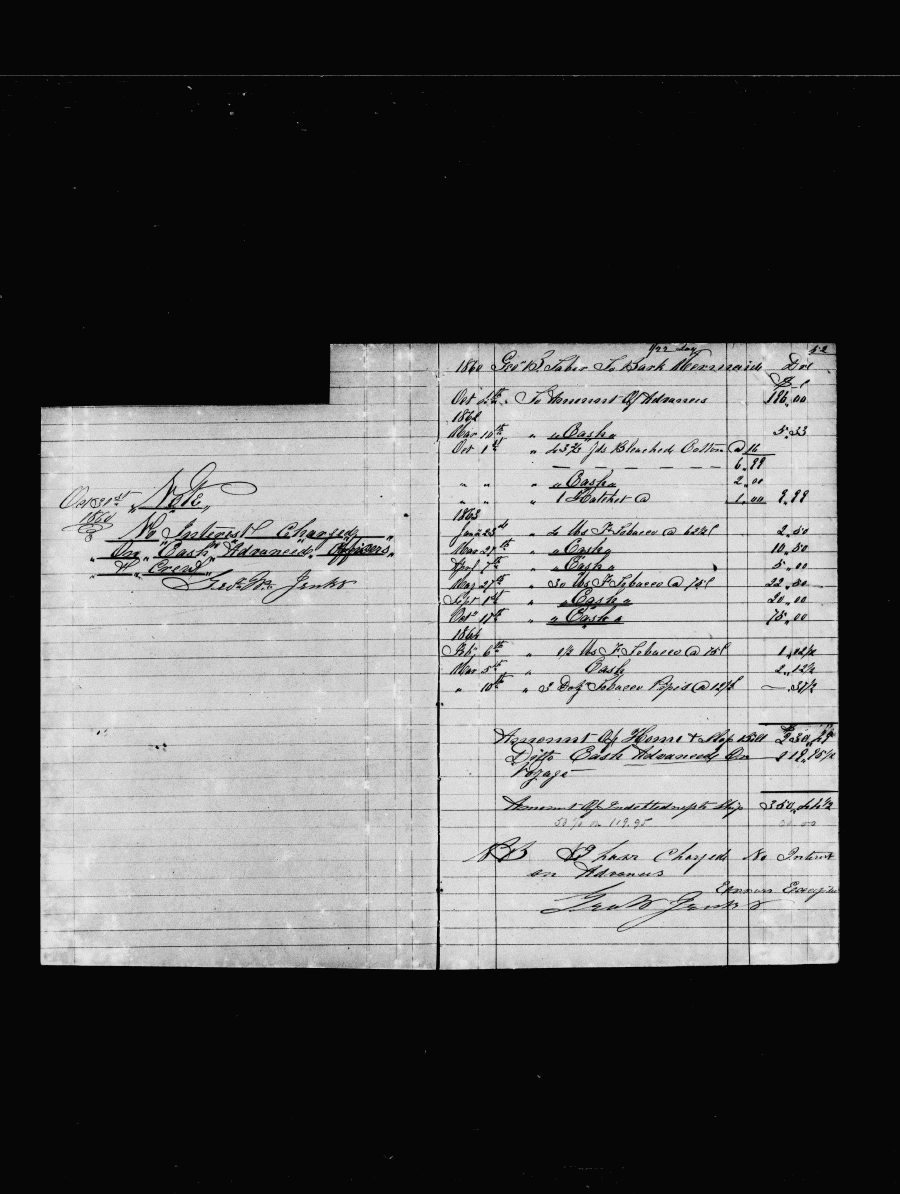 Oct 31st "Note"
1860
"No Interest Charged"
"On "Cash" Advanced" Officers"
"& "Crew"
Geo. W. Jenks
1/22 Lay 52
1860 Geo B Taber To Bark Mermaid Dol
Oct To Amount Of Advances 186,00
1862
Mar 10th " " Cash " 5,33
Oct 1st " yds Bleached Cotton @ 16
6,99
" " " " Cash " 2,00
" " " 1 Hatchet @ 1,00 9,99
1863
23d " 4 lbs F. Tobacco @ 62½ 2,50
Mar 27th " " Cash " 10,50
7th " " Cash " 5,00
May 27th " 30 lbs F. Tobacco @ 75 22,50
Sept 1st " " Cash " 20,00
Oct 11th " " Cash " 75,00
1864
Feb 6th " 1½ lbs F. Tobacco @ 75 1,12½
Mar 5th " Cash 2,12½
" 10th " 3 Doz Tobacco Pipes @ 12½ ,37½
Amount Of Home & Slop Bill
Ditto Cash Advanced On
Voyage
Amount Of Indebtedness to Ship 350,
on 119.95
NB I have Charged No Interest
on Advances
Geo W Jenks